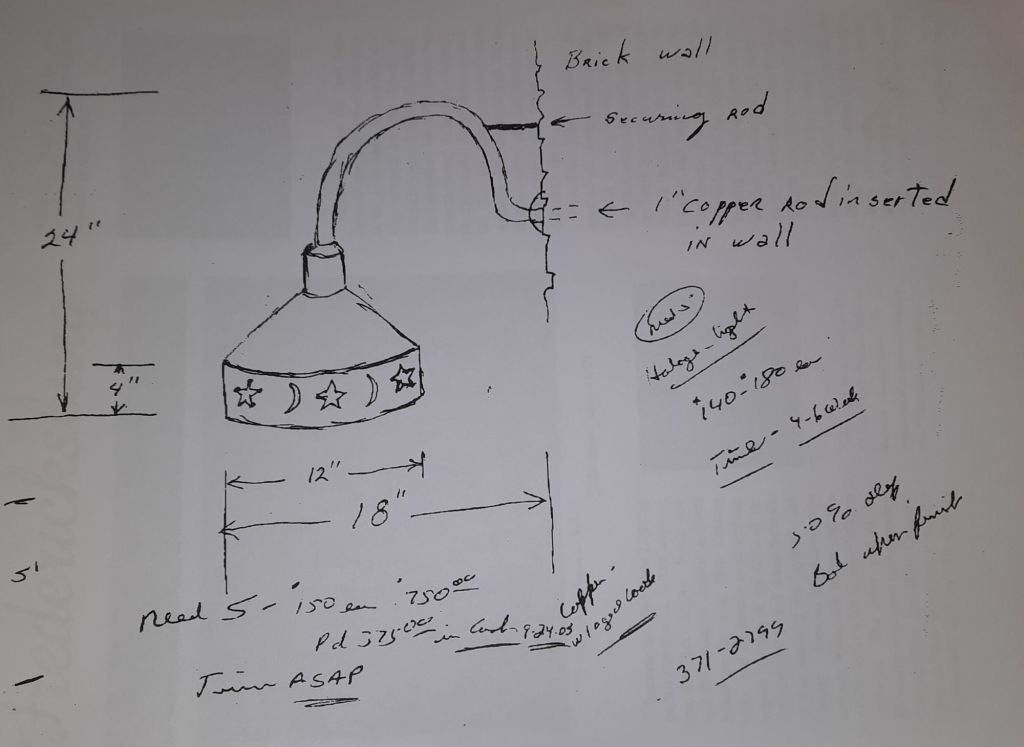 Brick wall
securing rod
24"
1" copper rod inserted
in wall
Halogen-light
4"
$140-$180 ea
Time - 4-6 week
12"
18"
50% dep
5'
Bal when finish
Need 5 - $150 ea $750.00
Pd 375.00 in Cash 9-24-03
Copper
371-2799
Time ASAP